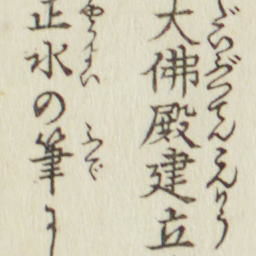 だいぶつてんこんりう
大佛殿建立
やうすい ふで
正水の筆